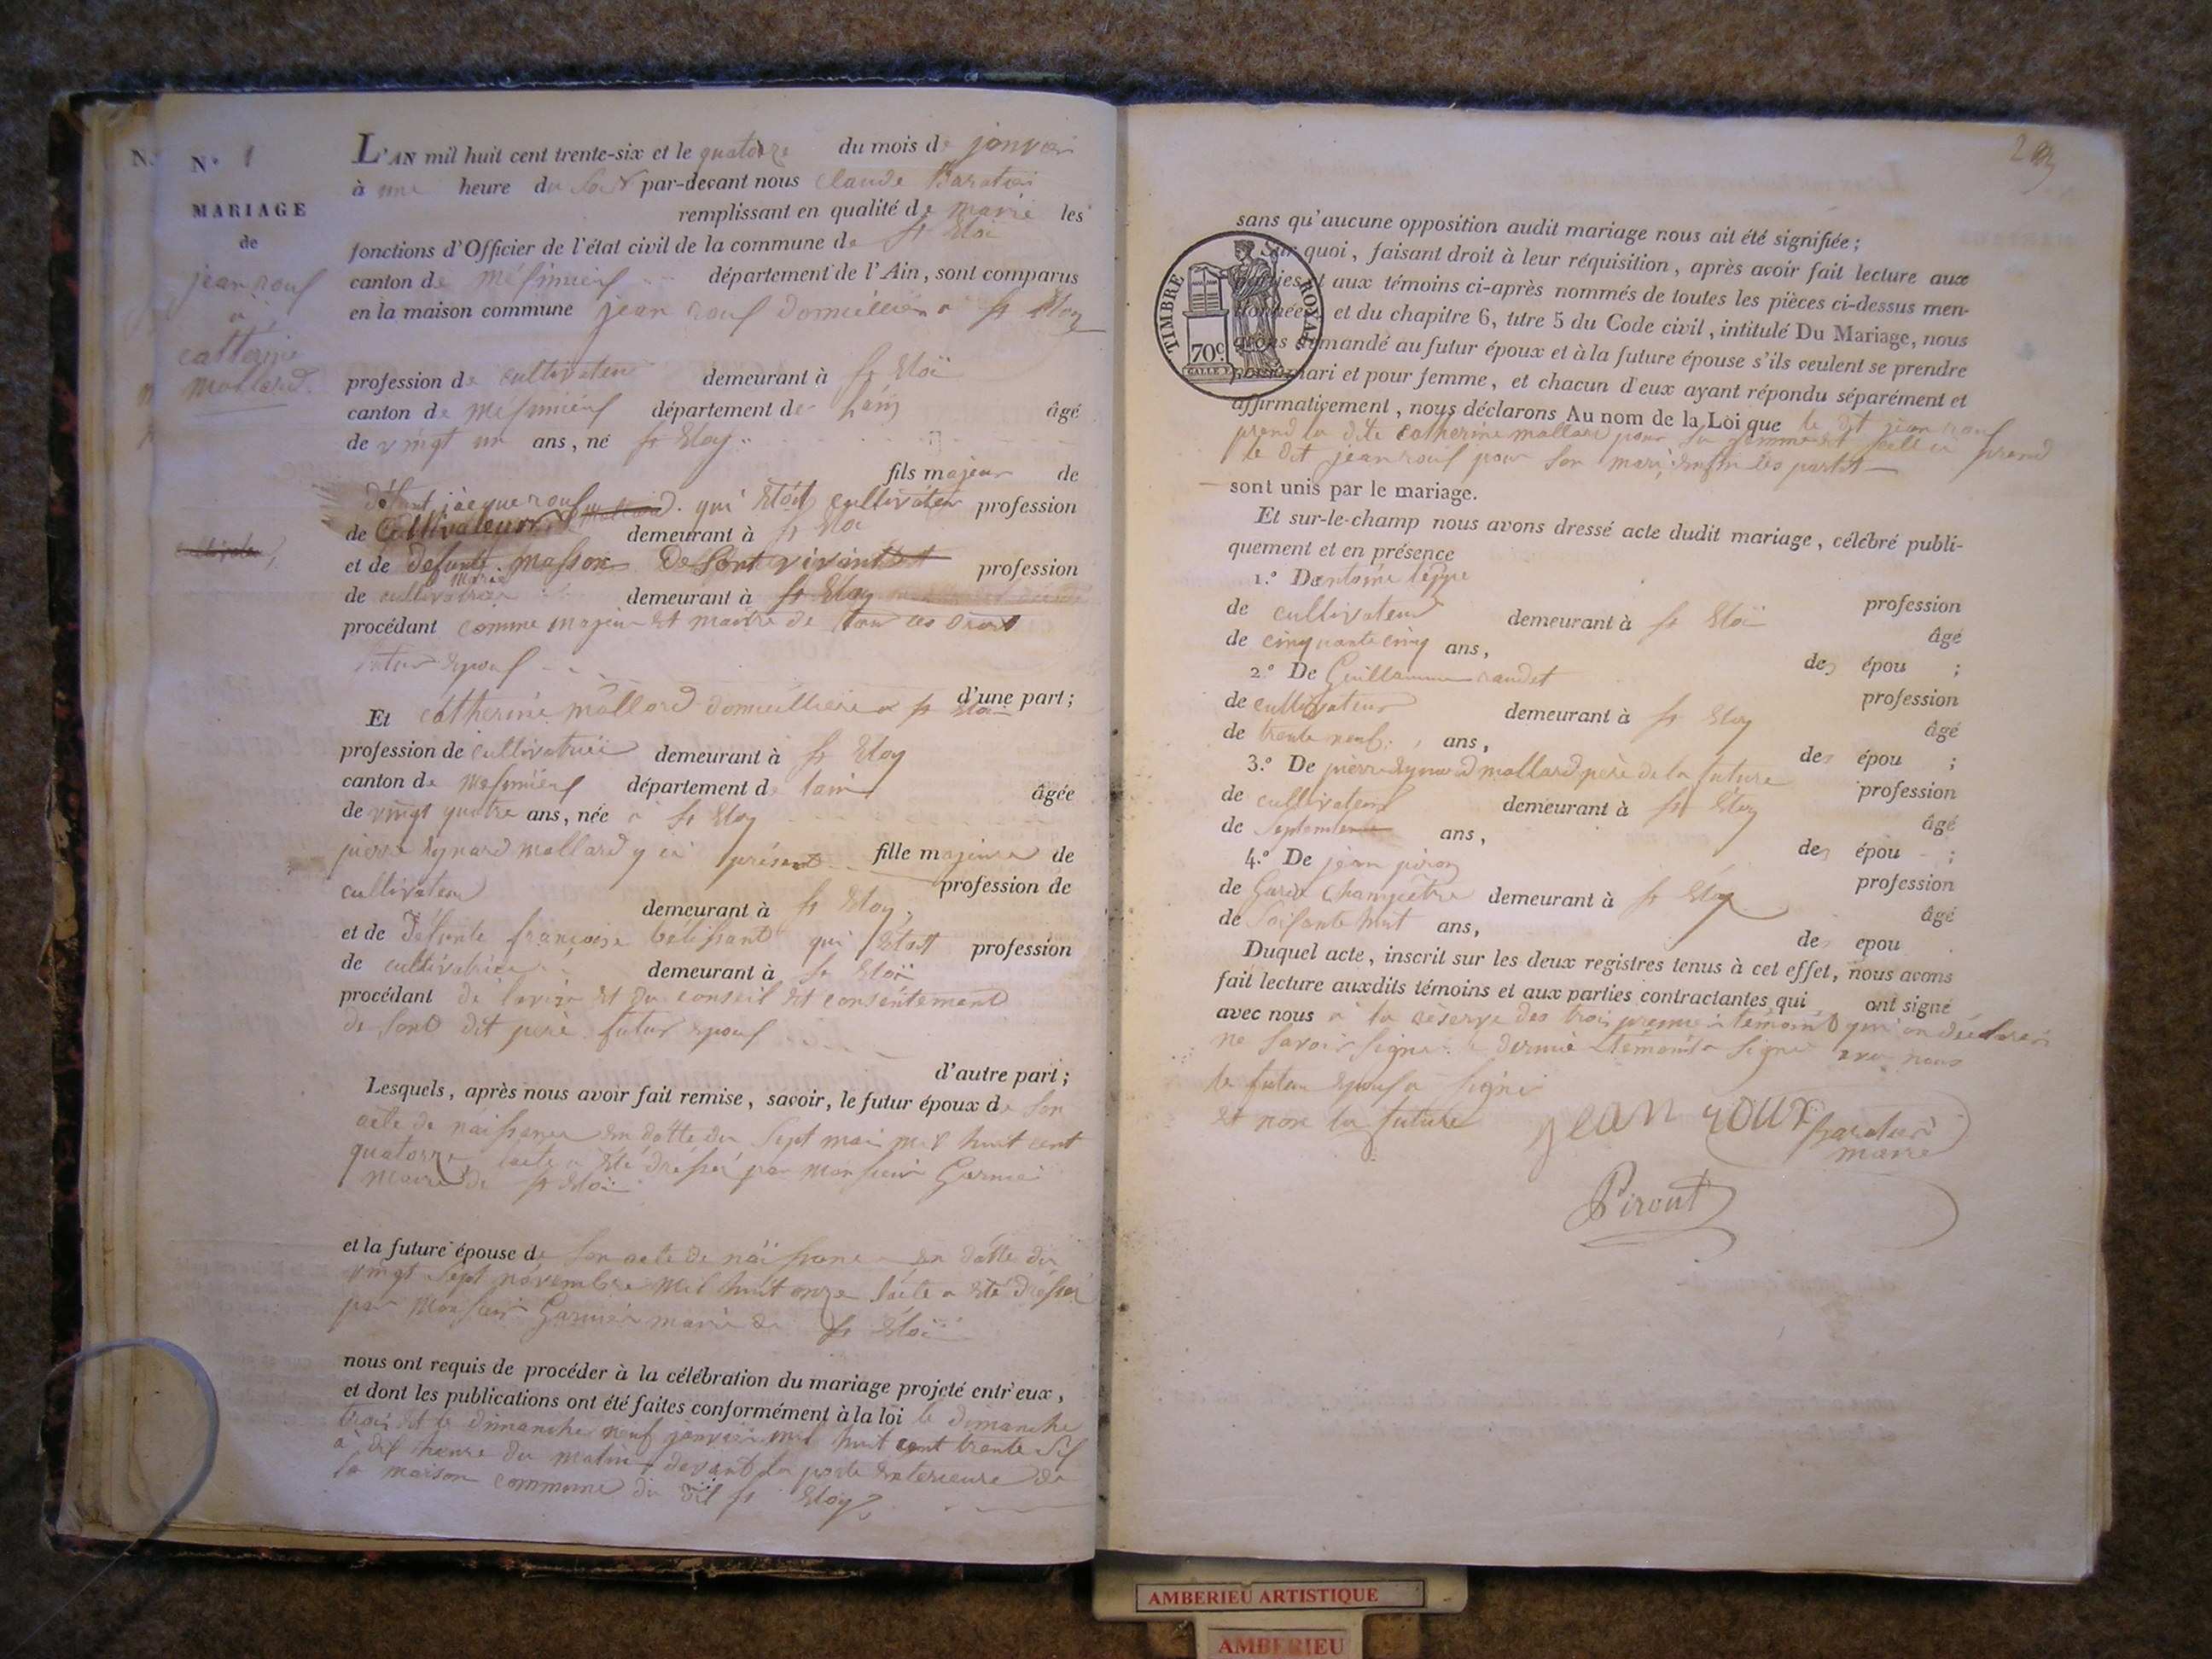 N.
N° 1
MARIAGE
de
jean rouf
a
catherine
mollard.
L'AN mil huit cent trente-six et le quatorze du mois de janvier
à une heure du soir par-devant nous claude Baratier
remplissant en qualité de marie les
fonctions d'Officier de l'état civil de la commune de st Eloi
canton de méssimieuf département de l'Ain, sont comparus
en la maison commune jean rouf domicillier a st Eloy
profession de cultivateur demeurant à st Eloï
canton de méssimieuf département de lain âgé
de vingt un ans, né st Eloy
fils majeur de
défunt jàcque rouf qui Etoit cultivateur profession
de Cultivateur demeurant à st Eloi
et de defunte masson profession
de cultivatrice demeurant à st Eloy
procédant comme majeur Et maitre de tous ces droit
futur Epouf
d'une part;
Et catherine mollard domicilliere a st Eloi
profession de cultivatrice demeurant à st Eloy
canton de messimieuf département de lain âgée
de vingt quatre ans, née a st Eloy
pierre Eynard mollard y ci présent fille majeure de
cultivateur profession de
demeurant à st Eloy
et de défunte françoise qui Etoit profession
de cultivatrice demeurant à st Eloï
procédant de lavize Et du conseil Et consentement
de sont dit père futur Epouf
d'autre part;
Lesquels, après nous avoir fait remise, savoir, le futur époux de son
acte de naissance En datte du sept mai mil huit cent
quatorze lacte a Eté dressé par monsieur Garnier
maire de st Eloï
et la future épouse de son acte de naissance En datte du
vingt sept novembre mil huit onze lacte a Eté dressé
par monsieur Garnier marie de st Eloï
nous ont requis de procéder à la célébration du mariage projeté entr'eux,
et dont les publications ont été faites conformément à la loi le dimanche
trois Et le dimanche neuf janvier mil huit cent trente sif
a dif heure du matin devant la porte Exterieure de
la maison commune du dit st Eloy
sans qu'aucune opposition audit mariage nous ait été signifiée;
Sur quoi, faisant droit à leur réquisition, après avoir fait lecture aux
parties et aux témoins ci-après nommés de toutes les pièces ci-dessus men-
tionnées, et du chapitre 6, titre 5 du Code civil, intitulé Du Mariage, nous
avons demandé au futur époux et à la future épouse s'ils veulent se prendre
pour mari et pour femme, et chacun d'eux ayant répondu séparément et
affirmativement, nous déclarons Au nom de la Loi que le dit jean rouf
prend la dite catherine mollard pour sa femme Et prend
le dit jean rouf pour son mari
sont unis par le mariage.
TIMBRE ROYAL
70c
Et sur-le-champ nous avons dressé acte dudit mariage, célébré publi-
quement et en présence
1.° D antoine profession
de cultivateur demeurant à st Eloï âgé
de cinquante cinq ans, de épou ;
2.° De Guillaumme profession
de cultivateur demeurant à st Eloy âgé
de trente neuf ans, de épou ;
3.° De pierre Eynard mollard père de la future profession
de cultivateur demeurant à st Eloy âgé
de ans, de épou ;
4.° De jean piron profession
de Garde champêtre demeurant à st Eloy âgé
de soifante huit ans, de epou
Duquel acte, inscrit sur les deux registres tenus à cet effet, nous avons
fait lecture auxdits témoins et aux parties contractantes qui ont signé
avec nous a la reserve des trois premier témoint qui on déclarer
ne savoir signer dernié témoint a signé avec nous
le futur Epouf a signé
Et non la future
jean roux
baratier
marie
Piront
AMBERIEU ARTISTIQUE
AMBERIEU